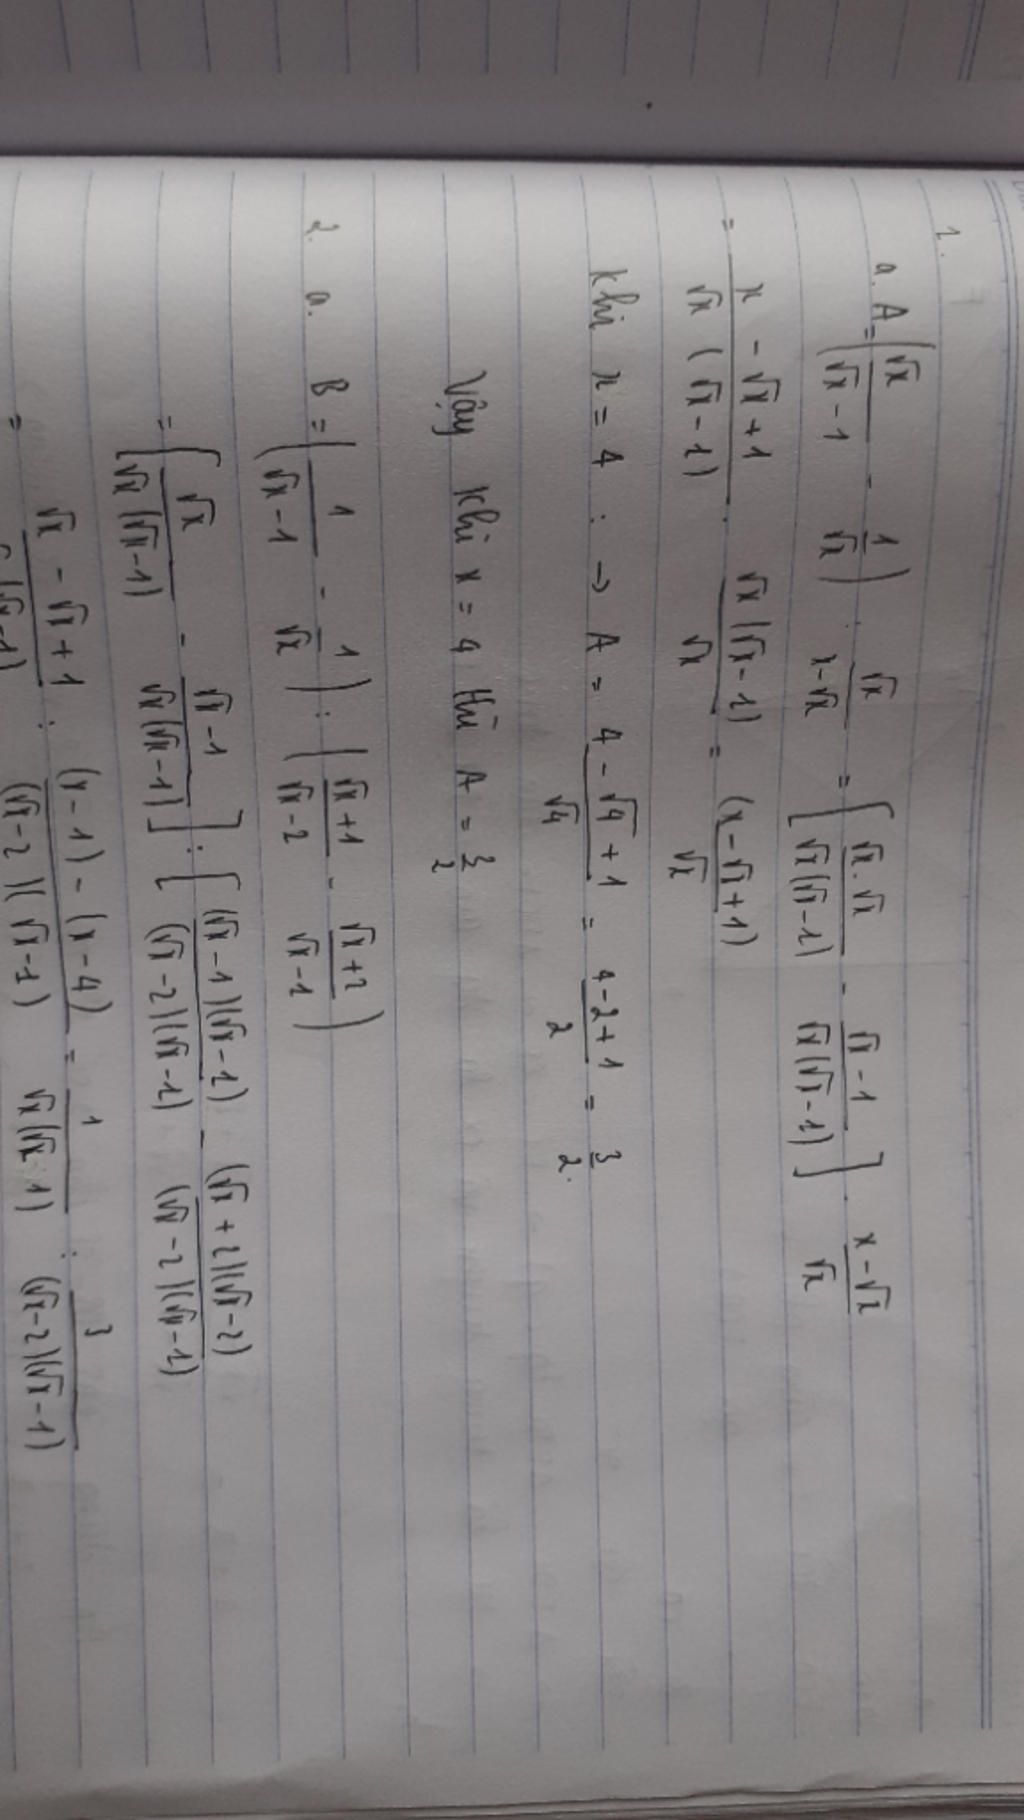 1.
a. A = (√x/(√x-1) - 1/√x) : √x/(x-√x) = [√x.√x/(√x(√x-1)) - (√x-1)/(√x(√x-1))] . (x-√x)/√x
= (x-√x+1)/(√x(√x-1)) . √x(√x-1)/√x = (x-√x+1)/√x
Khi x = 4 : → A = (4-√4+1)/√4 = (4-2+1)/2 = 3/2.
Vậy khi x = 4 thì A = 3/2
2. a. B = (1/(√x-1) - 1/√x) : ((√x+1)/(√x-2) - (√x+2)/(√x-1))
= [√x/(√x(√x-1)) - (√x-1)/(√x(√x-1))] : [(√x-1)(√x-1)/((√x-2)(√x-1)) - (√x+2)(√x-2)/((√x-2)(√x-1))
= (√x-√x+1)/(√x(√x-1)) : ((x-1)-(x-4))/((√x-2)(√x-1)) = 1/(√x(√x-1)) : 3/((√x-2)(√x-1))